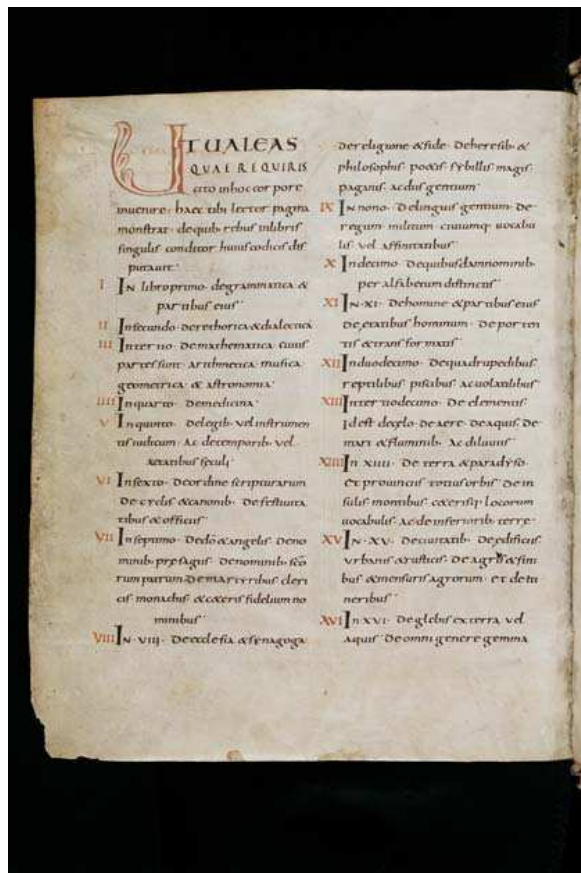 UTUALEAS
QUAE REQUIRIS
cito inhoc corpore
inuenire· haec tibi lector pagina
monstrat· dequib· rebus inlibris
singulis conditor huius codicis dis
putauit·
I IN libro primo· degrammatica &
partibus eius·
II Insecundo· derethorica & dialectica
III Inter tio· De mathematica cuius
partes sunt· arithmetica musica
geometrica & astronomia·
IIII Inquarto· Demedicina·
V Inquinto· Delegib· vel instrumen
tis iudicum· Ac detemporib· vel
aetatibus seculi·
VI Insexto· Deordine scripturarum
De cyclis & canonib· De festiuita
tibus & officiis·
VII Inseptimo· Dedō & angelis· Deno
minib· presagis· Denominib· scō
rum patrum· De martyribus cleri
cis monachis & ceteris fidelium no
minibus·
VIII IN· VIII· De ecclesia & synagoga·
De religione & fide· De heresib· &
philosophis· poetis· sybillis· magis·
paganis· ac diis gentium·
IX IN nono· De linguis gentium· De
regum· militum· ciuiumq· uocabu
lis vel affinitatibus·
X Indecimo· De quibusdam nominib·
per alfabetum distinctis·
XI IN· XI· De homine & partibus eius·
De aetatibus hominum· De porten
tis & transformatis·
XII Induodecimo· De quadrupedibus
reptilibus piscibus ac uolatilibus·
XIII Inter tiodecimo· De elementis·
Idest decęlo· De aere· De aquis· De
mari & fluminib· Ac diluuiis·
XIIII IN XIIII· De terra & paradyso·
Et prouinciis totius orbis· De in
sulis montibus ceterisq· locorum
uocabulis· Ac de inferiorib· terre·
XV IN· XV· De ciuitatib· De edificiis
urbanis & rusticis· De agris & fini
bus & mensuris agrorum· et de iti
neribus·
XVI IN XVI· De glebis ex terra· vel
aquis· De omni genere gemma